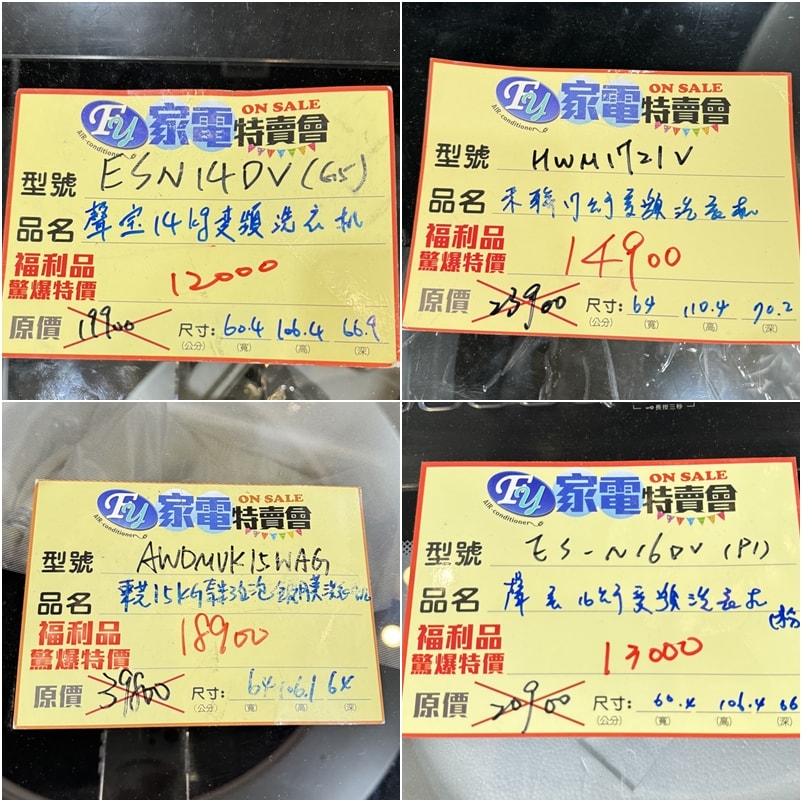 Fy 家電特賣會 ON SALE
AIR-conditioner
型號 ESN14DV(G5)
品名 聲宝14kg变頻洗衣机
福利品
驚爆特價 12000
原價 19900 尺寸: 60.4 106.4 66.9
(公分) (寬) (高) (深)
Fy 家電特賣會 ON SALE
AIR-conditioner
型號 HWM1721V
品名 禾聯17公斤变頻洗衣机
福利品
驚爆特價 14900
原價 23900 尺寸: 64 110.4 70.2
(公分) (寬) (高) (深)
Fy 家電特賣會 ON SALE
AIR-conditioner
型號 AWDMVK15WAG
品名 東芝15KG
福利品
驚爆特價 18900
原價 39800 尺寸: 64 106.1 64
(公分) (寬) (高) (深)
長按三秒
Fy 家電特賣會 ON SALE
AIR-conditioner
型號 ES-N16DV(P1)
品名 聲宝16公斤变頻洗衣机(粉
福利品
驚爆特價 13000
原價 20900 尺寸: 60.4 106.4 66
(公分) (寬) (高) (深)